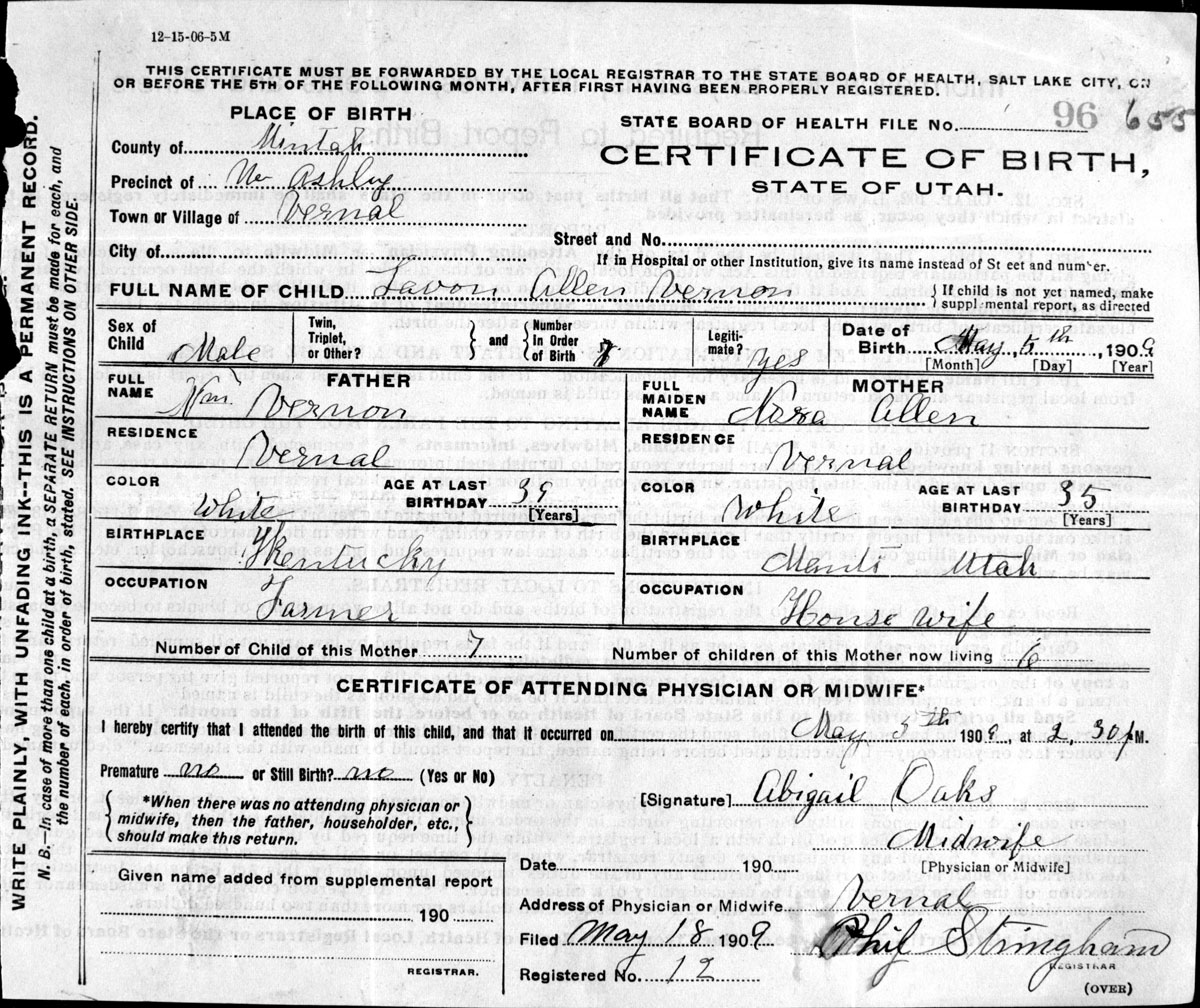 12-15-06-5M
THIS CERTIFICATE MUST BE FORWARDED BY THE LOCAL REGISTRAR TO THE STATE BOARD OF HEALTH, SALT LAKE CITY, ON
OR BEFORE THE 5TH OF THE FOLLOWING MONTH, AFTER FIRST HAVING BEEN PROPERLY REGISTERED.
PLACE OF BIRTH
County of Uintah
Precinct of Ashley
Town or Village of Vernal
City of
STATE BOARD OF HEALTH FILE No. 96 655
CERTIFICATE OF BIRTH,
STATE OF UTAH.
Street and No.
If in Hospital or other Institution, give its name instead of Street and number.
FULL NAME OF CHILD Lavon Allen Vernon
{ If child is not yet named, make
supplmental report, as directed
Sex of Child Male
Twin, Triplet, or Other? } and { Number In Order of Birth 7
Legiti- mate? Yes
Date of Birth May, 5th, 1909
[Month] [Day] [Year]
FATHER
FULL NAME Wm. Vernon
RESIDENCE Vernal
COLOR White
AGE AT LAST BIRTHDAY
[Years]
BIRTHPLACE Kentucky
OCCUPATION Farmer
MOTHER
FULL MAIDEN NAME Allen
RESIDENCE Vernal
COLOR White
AGE AT LAST BIRTHDAY 35
[Years]
BIRTHPLACE Manti Utah
OCCUPATION House wife
Number of Child of this Mother 7
Number of children of this Mother now living 6
CERTIFICATE OF ATTENDING PHYSICIAN OR MIDWIFE*
I hereby certify that I attended the birth of this child, and that it occurred on May 5th 1909, at 2,30 P M.
Premature no or Still Birth? no (Yes or No)
{ *When there was no attending physician or
midwife, then the father, householder, etc.,
should make this return. }
[Signature] Abigail Oaks
Midwife
[Physician or Midwife]
Given name added from supplemental report
190
REGISTRAR.
Date 190
Address of Physician or Midwife Vernal
Filed May 18 1909 Phil Stringham
REGISTRAR
Registered No. 12
(OVER)
WRITE PLAINLY, WITH UNFADING INK--THIS IS A PERMANENT RECORD.
N. B.--In case of more than one child at a birth, a SEPARATE RETURN must be made for each, and
the number of each, in order of birth, stated. SEE INSTRUCTIONS ON OTHER SIDE.